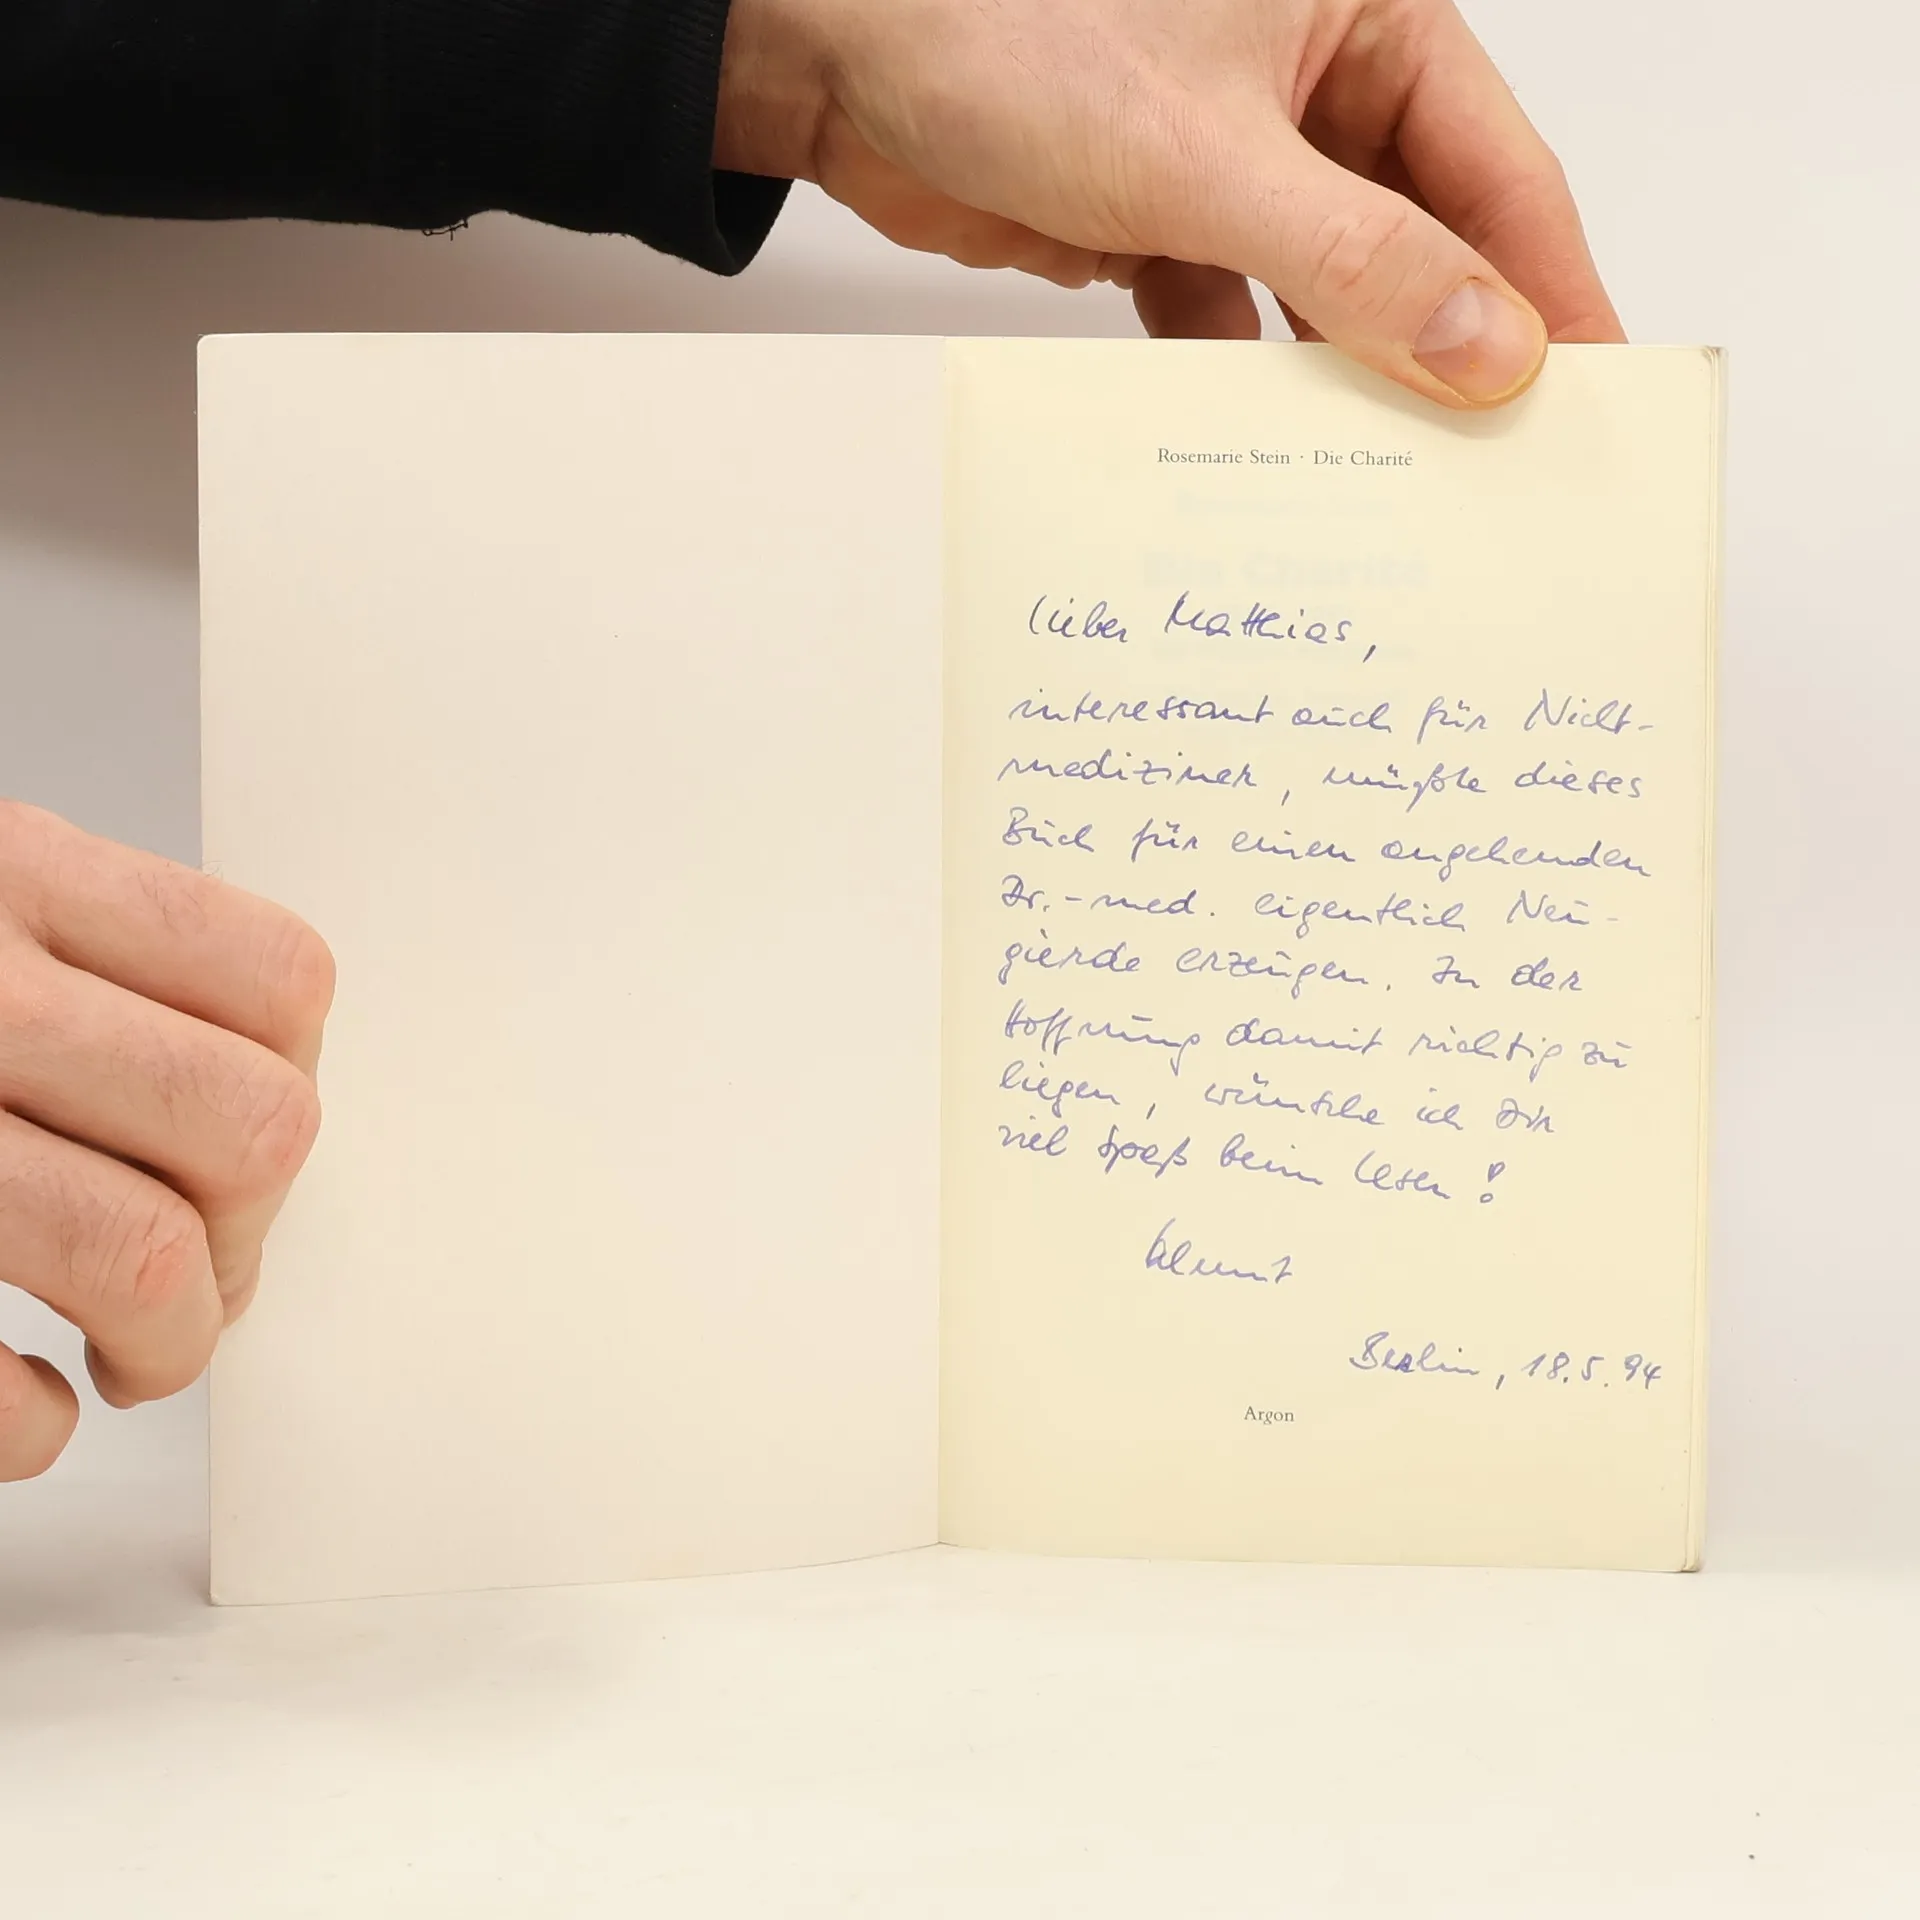 Rosemarie Stein · Die Charité
Lieber Matthias,
interessant auch für Nicht-
mediziner, müßte dieses
Buch für einen angehenden
Dr.-med. eigentlich Neu-
gierde erzeugen. In der
Hoffnung damit richtig zu
liegen, wünsche ich Dir
viel Spaß beim Lesen!
Berlin, 18.5.94
Argon